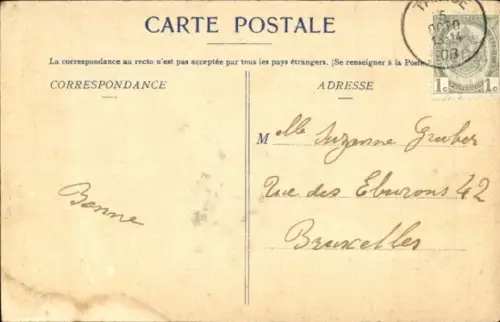 CARTE POSTALE
La correspondance au recto n'est pas acceptée par tous les pays étrangers. (Se renseigner à la Poste
CORRESPONDANCE
ADRESSE
5
OCTO
13-14
08
1c 1c
Mlle Suzanne Gruber
Rue des Eburons 42
Bruxelles
Bonne